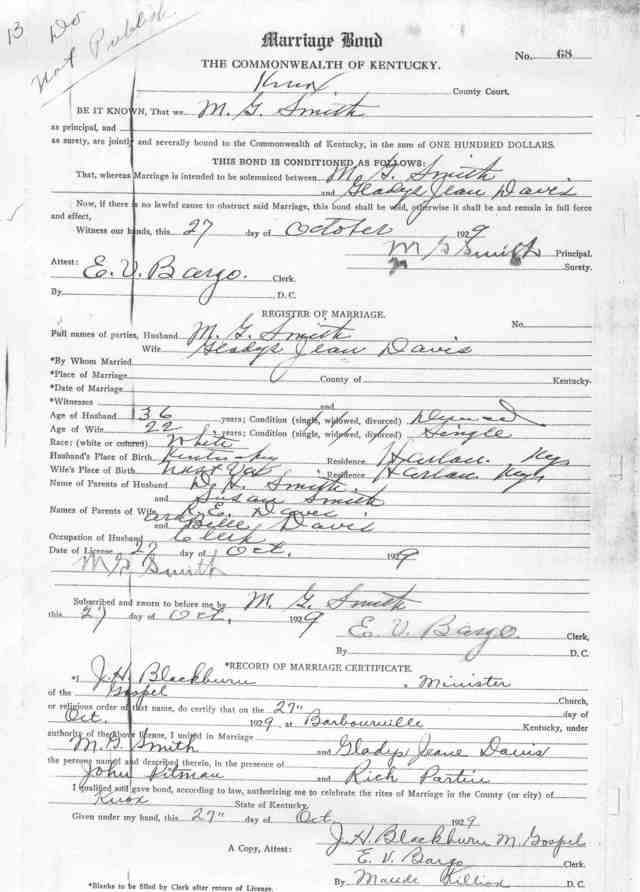 13 Do
not Publish
Marriage Bond
No. 68
THE COMMONWEALTH OF KENTUCKY.
Knox County Court.
BE IT KNOWN, That we M. G. Smith
as principal, and
as surety, are jointly and severally bound to the Commonwealth of Kentucky, in the sum of ONE HUNDRED DOLLARS.
THIS BOND IS CONDITIONED AS FOLLOWS:
That, whereas Marriage is intended to be solemnized between M. G. Smith
and Gladys Jean Davis
Now, if there is no lawful cause to obstruct said Marriage, this bond shall be void, otherwise it shall be and remain in full force
and effect,
Witness our hands, this 27 day of October 1929
M G Smith Principal.
Surety.
Attest: E. V. Bargo. Clerk.
By D. C.
REGISTER OF MARRIAGE.
No.
Full names of parties, Husband M. G. Smith
Wife Gladys Jean Davis
*By Whom Married
*Place of Marriage County of Kentucky.
*Date of Marriage
*Witnesses and
Age of Husband 36 years; Condition (single, widowed, divorced)
Age of Wife 22 years; Condition (single, widowed, divorced) Single
Race: (white or colored) White
Husband's Place of Birth Kentucky Residence Harlan. Ky
Wife's Place of Birth West Va Residence Harlan. Ky
Name of Parents of Husband D. H. Smith
and Susan Smith
Names of Parents of Wife R. E. Davis
and Belle Davis
Occupation of Husband Clerk
Date of License 27 day of Oct. 1929
M G Smith
Subscribed and sworn to before me by M. G. Smith
this 27 day of Oct, 1929
E. V. Bargo Clerk,
By D. C.
*RECORD OF MARRIAGE CERTIFICATE.
*I J. H. Blackburn, Minister
of the Gospel Church,
or religious order of that name, do certify that on the 27" day of
Oct. 1929 at Barbourville Kentucky, under
authority of the above license, I united in Marriage
M. G. Smith and Gladys Jeane Davis
the persons named and described therein, in the presence of
John Pitman and Rich Partin
I qualified and gave bond, according to law, authorizing me to celebrate the rites of Marriage in the County (or city) of
Knox State of Kentucky.
Given under my hand, this 27" day of Oct 1929
J. H. Blackburn M. Gospel
A Copy, Attest: E. V. Bargo Clerk
By Maude Killion D. C.
*Blanks to be filled by Clerk after return of License.